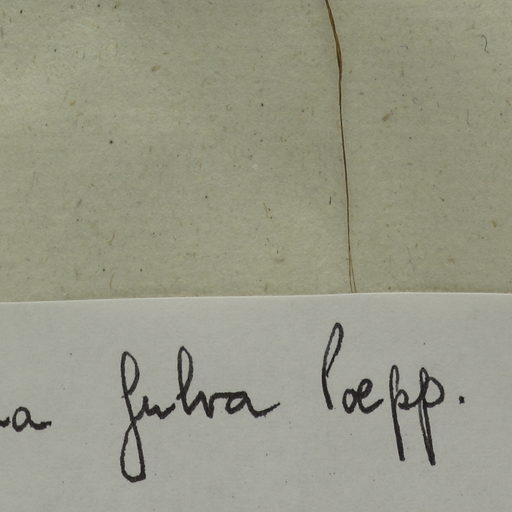 a fulva Poepp.